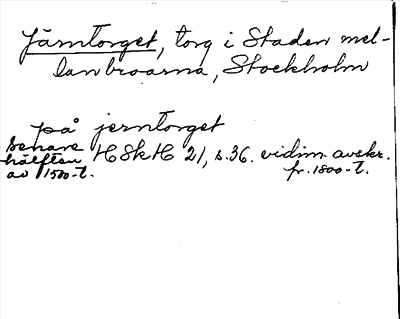 Järntorget, torg i Staden mel-
lan broarna, Stockholm
på jerntorget
senare
hälften HSkH 21, s. 36. vidim. avskr.
av 1500-t. fr. 1800-t.